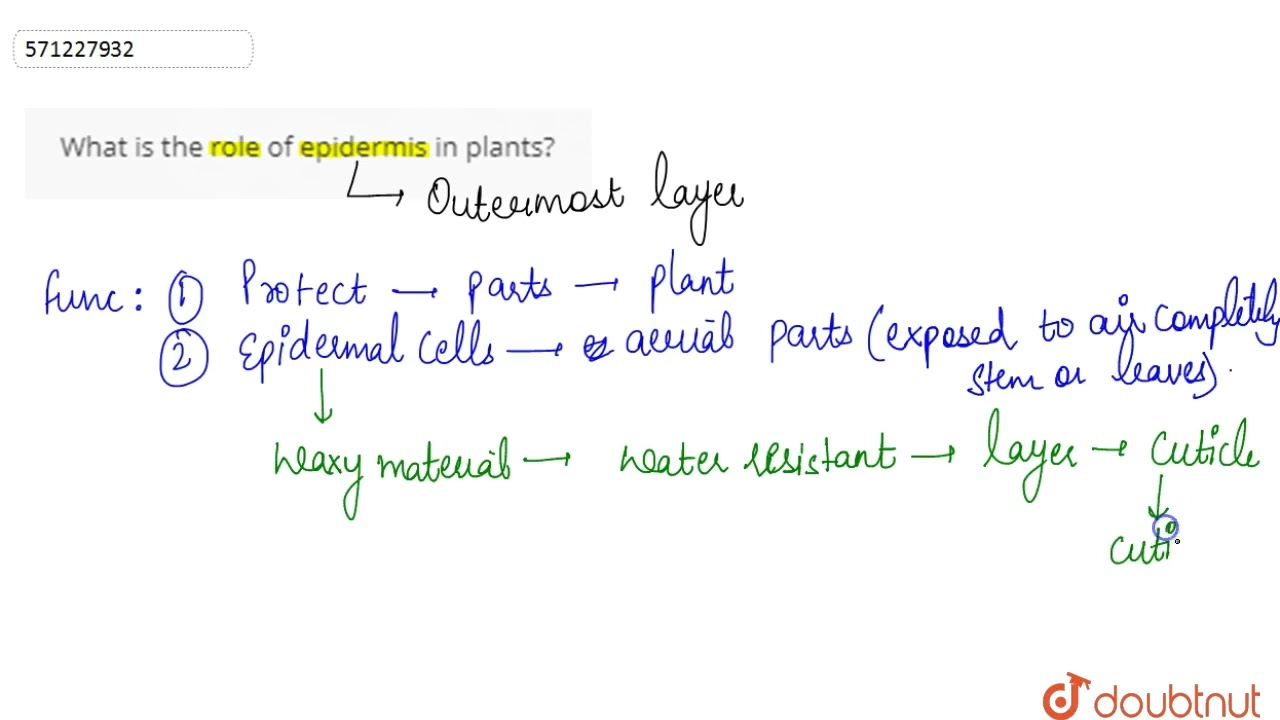 571227932
What is the role of epidermis in plants?
Outermost layer
func: ① Protect → parts → plant
② Epidermal cells → aerial parts (exposed to air completely
stem or leaves).
Waxy material → water resistant → layer → cuticle
cuti
doubtnut